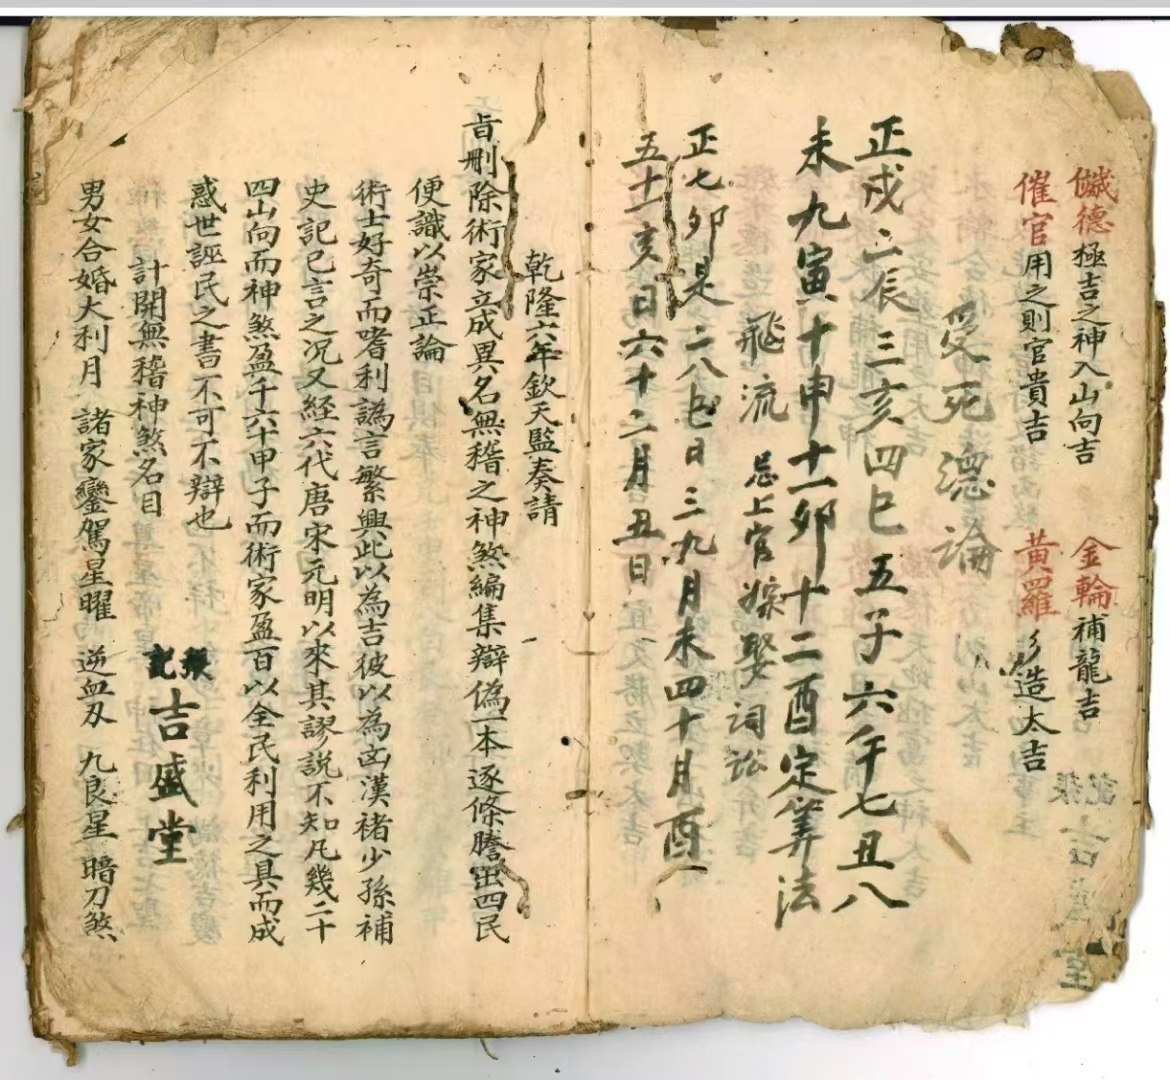 巇德極吉之神入山向吉 金輪補龍吉
催官用之則官貴吉 黃羅彡造大吉
受死總論
正戌二辰三亥四巳五子六午七丑八
未九寅十申十一卯十二酉定筭法
飛流 忌上官嫁娶詞訟
正七卯是二八巳日三九月未四十月酉
五十一亥日六十二月丑日
乾隆六年欽天監奏請
旨刪除術家立成異名無稽之神煞編集辯偽一本逐條謄出四民
便識以崇正論
術士好奇而嗜利譌言繁興此以為吉彼以為凶漢褚少孫補
史記已言之况又経六代唐宋元明以來其謬說不知凡幾二十
四山向而神煞盈千六十甲子而術家盈百以全民利用之具而成
惑世誣民之書不可不辯也
計開無稽神煞名目
張記吉盛堂
男女合婚大利月 諸家鑾駕星曜 逆血刃 九良星 暗刀煞